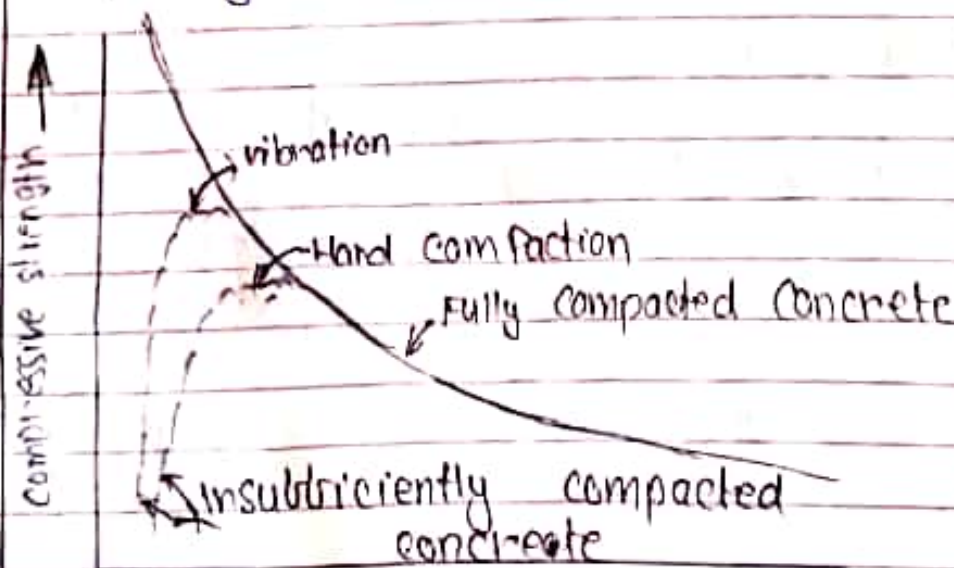 compressive strength
vibration
Hard compaction
Fully compacted concrete
Insubtriciently compacted
concreate